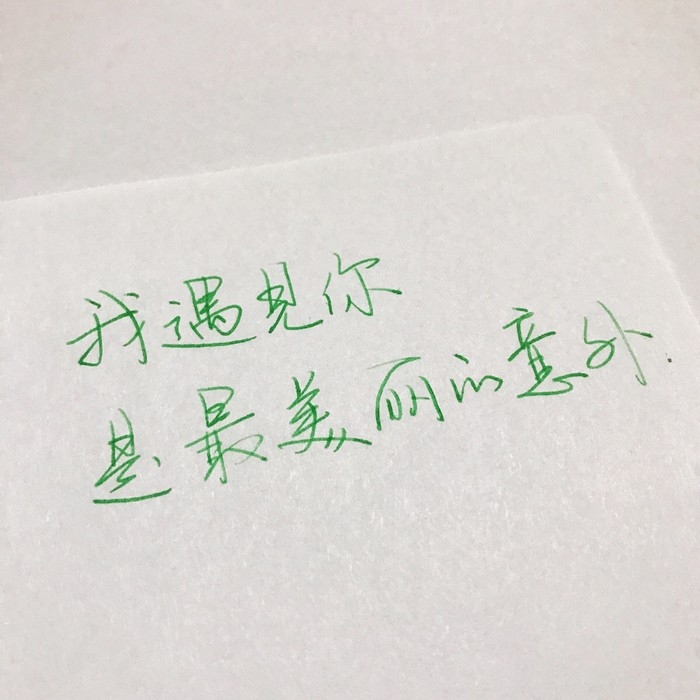 我遇見你
是最美丽的意外.